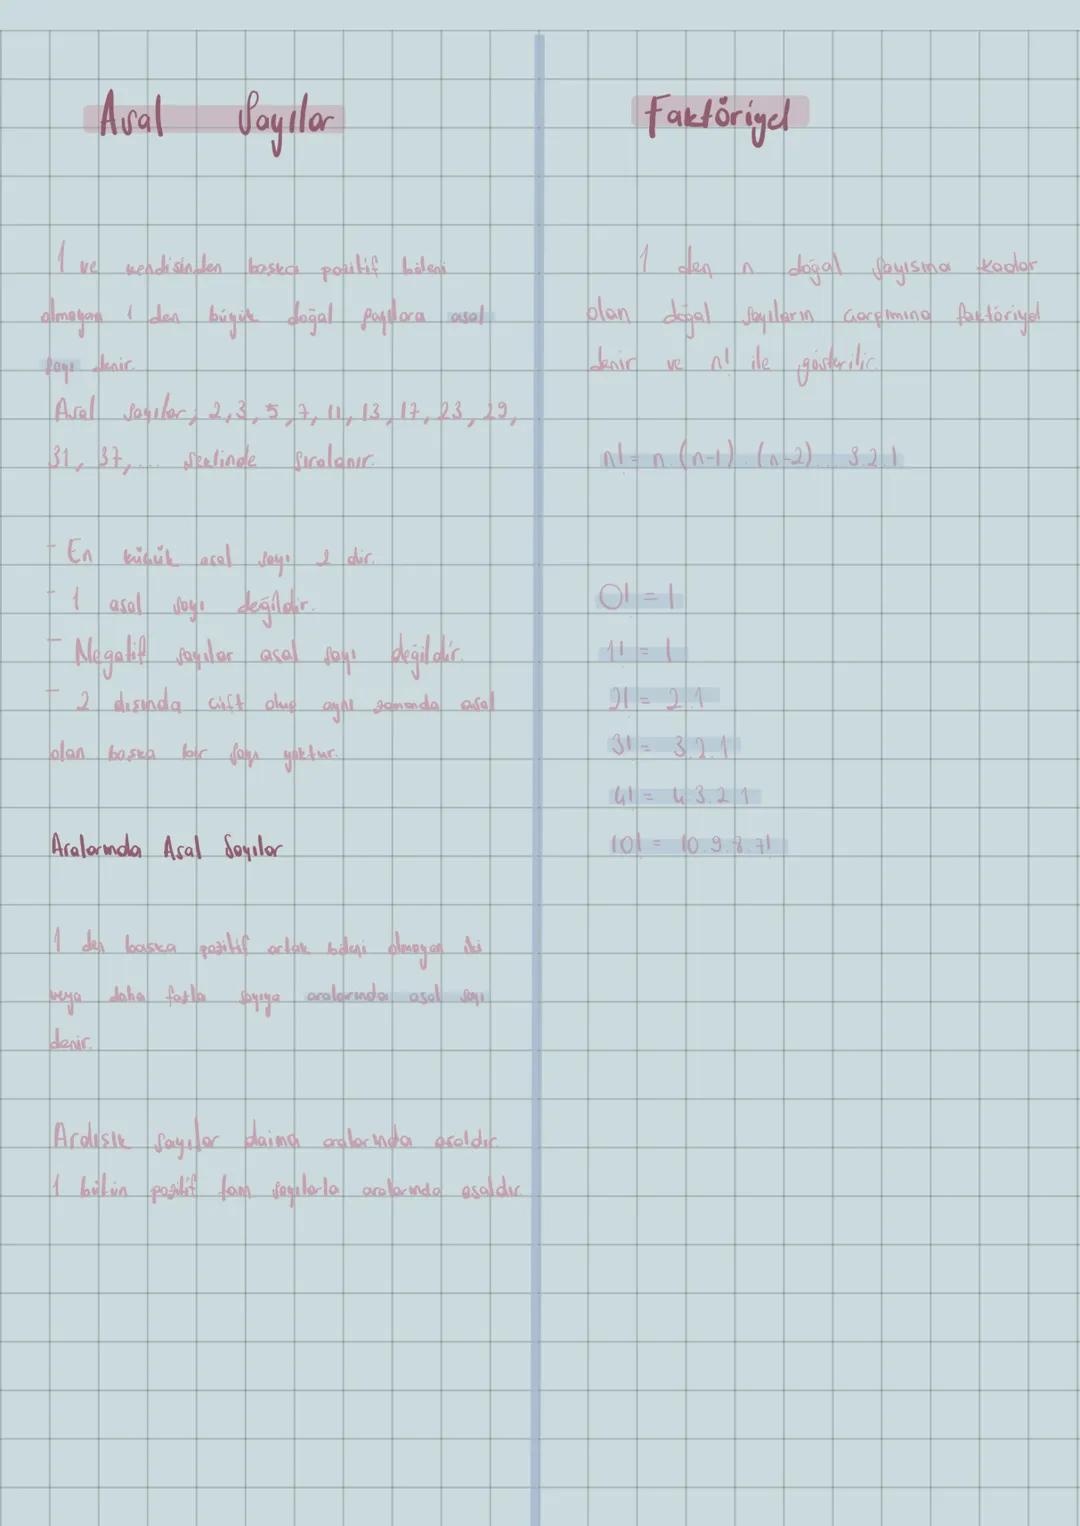 Asal Sayılar
1 ve kendisinden başka pozitif böleni
olmayan 1 den büyük doğal sayılara asal
sayı denir.
Asal sayılar; 2, 3, 5, 7, 11, 13, 17, 23, 29,
31, 37, ... şeklinde sıralanır.
- En küçük asal sayı 2 dir.
- 1 asal sayı değildir.
- Negatif sayılar asal sayı değildir.
- 2 dışında çift olup aynı zamanda asal
olan başka bir sayı yoktur.
Aralarında Asal Sayılar
1 den başka pozitif ortak böleni olmayan iki
veya daha fazla sayıya aralarında asal sayı
denir.
Ardışık sayılar daima aralarında asaldır.
1 bütün pozitif tam sayılarla aralarında asaldır.
Faktöriyel
1 den n doğal sayısına kadar
olan doğal sayıların çarpımına faktöriyel
denir ve n! ile gösterilir.
n! = n.(n-1).(n-2)...3.2.1
0! = 1
1! = 1
2! = 2.1
3! = 3.2.1
4! = 4.3.2.1
10! = 10.9.8.7!